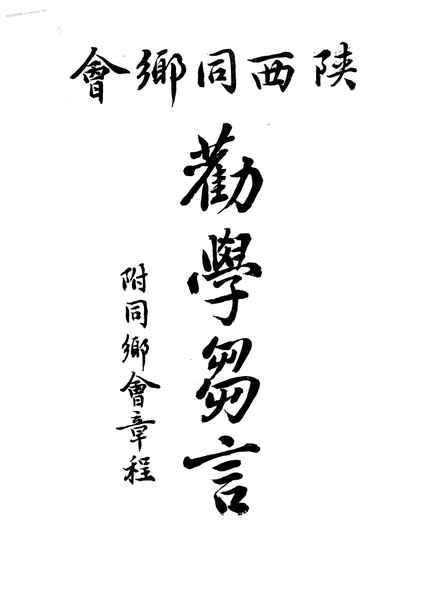 陝西同鄉會
勸學芻言
附同鄉會章程